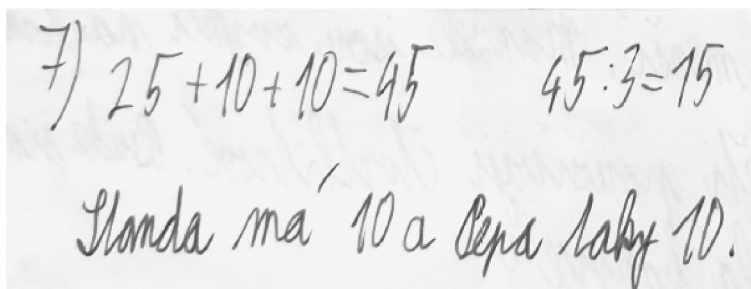 7) 25+10+10=45 45:3=15
Standa má 10 a Pepa taky 10.